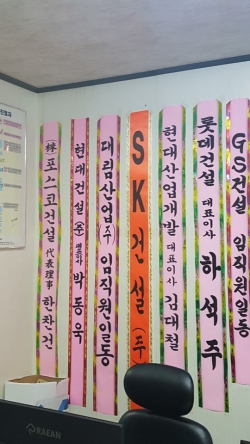 (株)포스코건설 代表理事 한찬건
현대건설(주) 박동욱
대림산업(주) 임직원일동
SK건설(주)
현대산업개발 대표이사 김대철
롯데건설 대표이사 하석주
GS건설 임직원일동
RAEAN